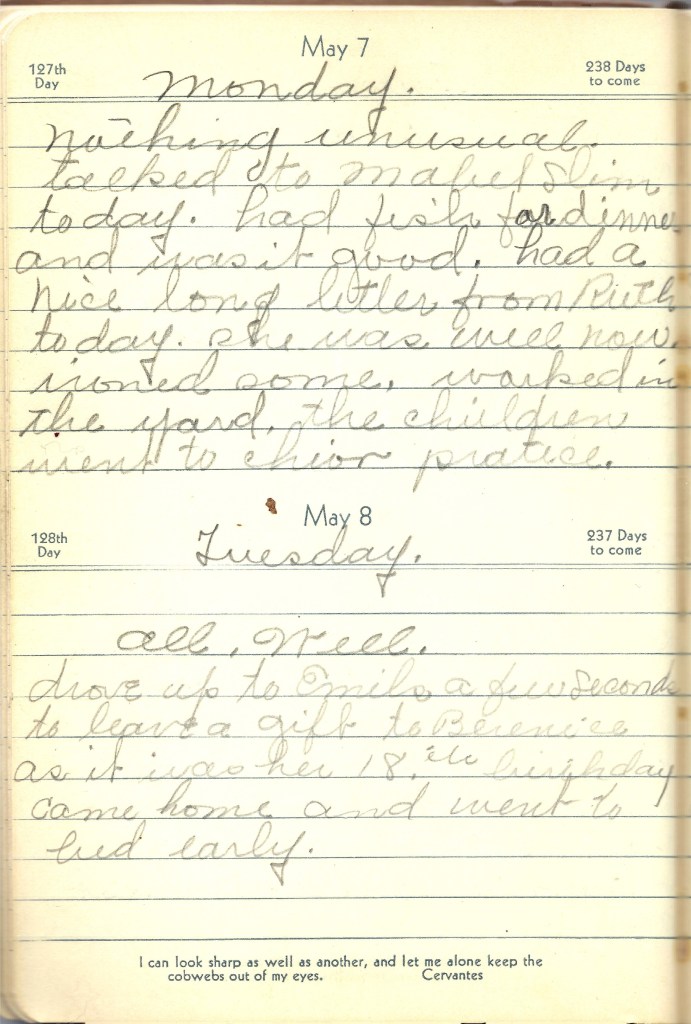 May 7
127th
Day
238 Days
to come
Monday.
nothing unusual.
talked to Mabel Slim
today. had fish for dinner
and was it good. had a
nice long letter from Ruth
today. she was well now.
ironed some. worked in
the yard. the children
went to chior pratice.
May 8
128th
Day
237 Days
to come
Tuesday.
all. Well.
drove up to Emils a few seconds
to leave a gift to Berenice
as it was her 18.th birthday
came home and went to
bed early.
I can look sharp as well as another, and let me alone keep the
cobwebs out of my eyes. Cervantes